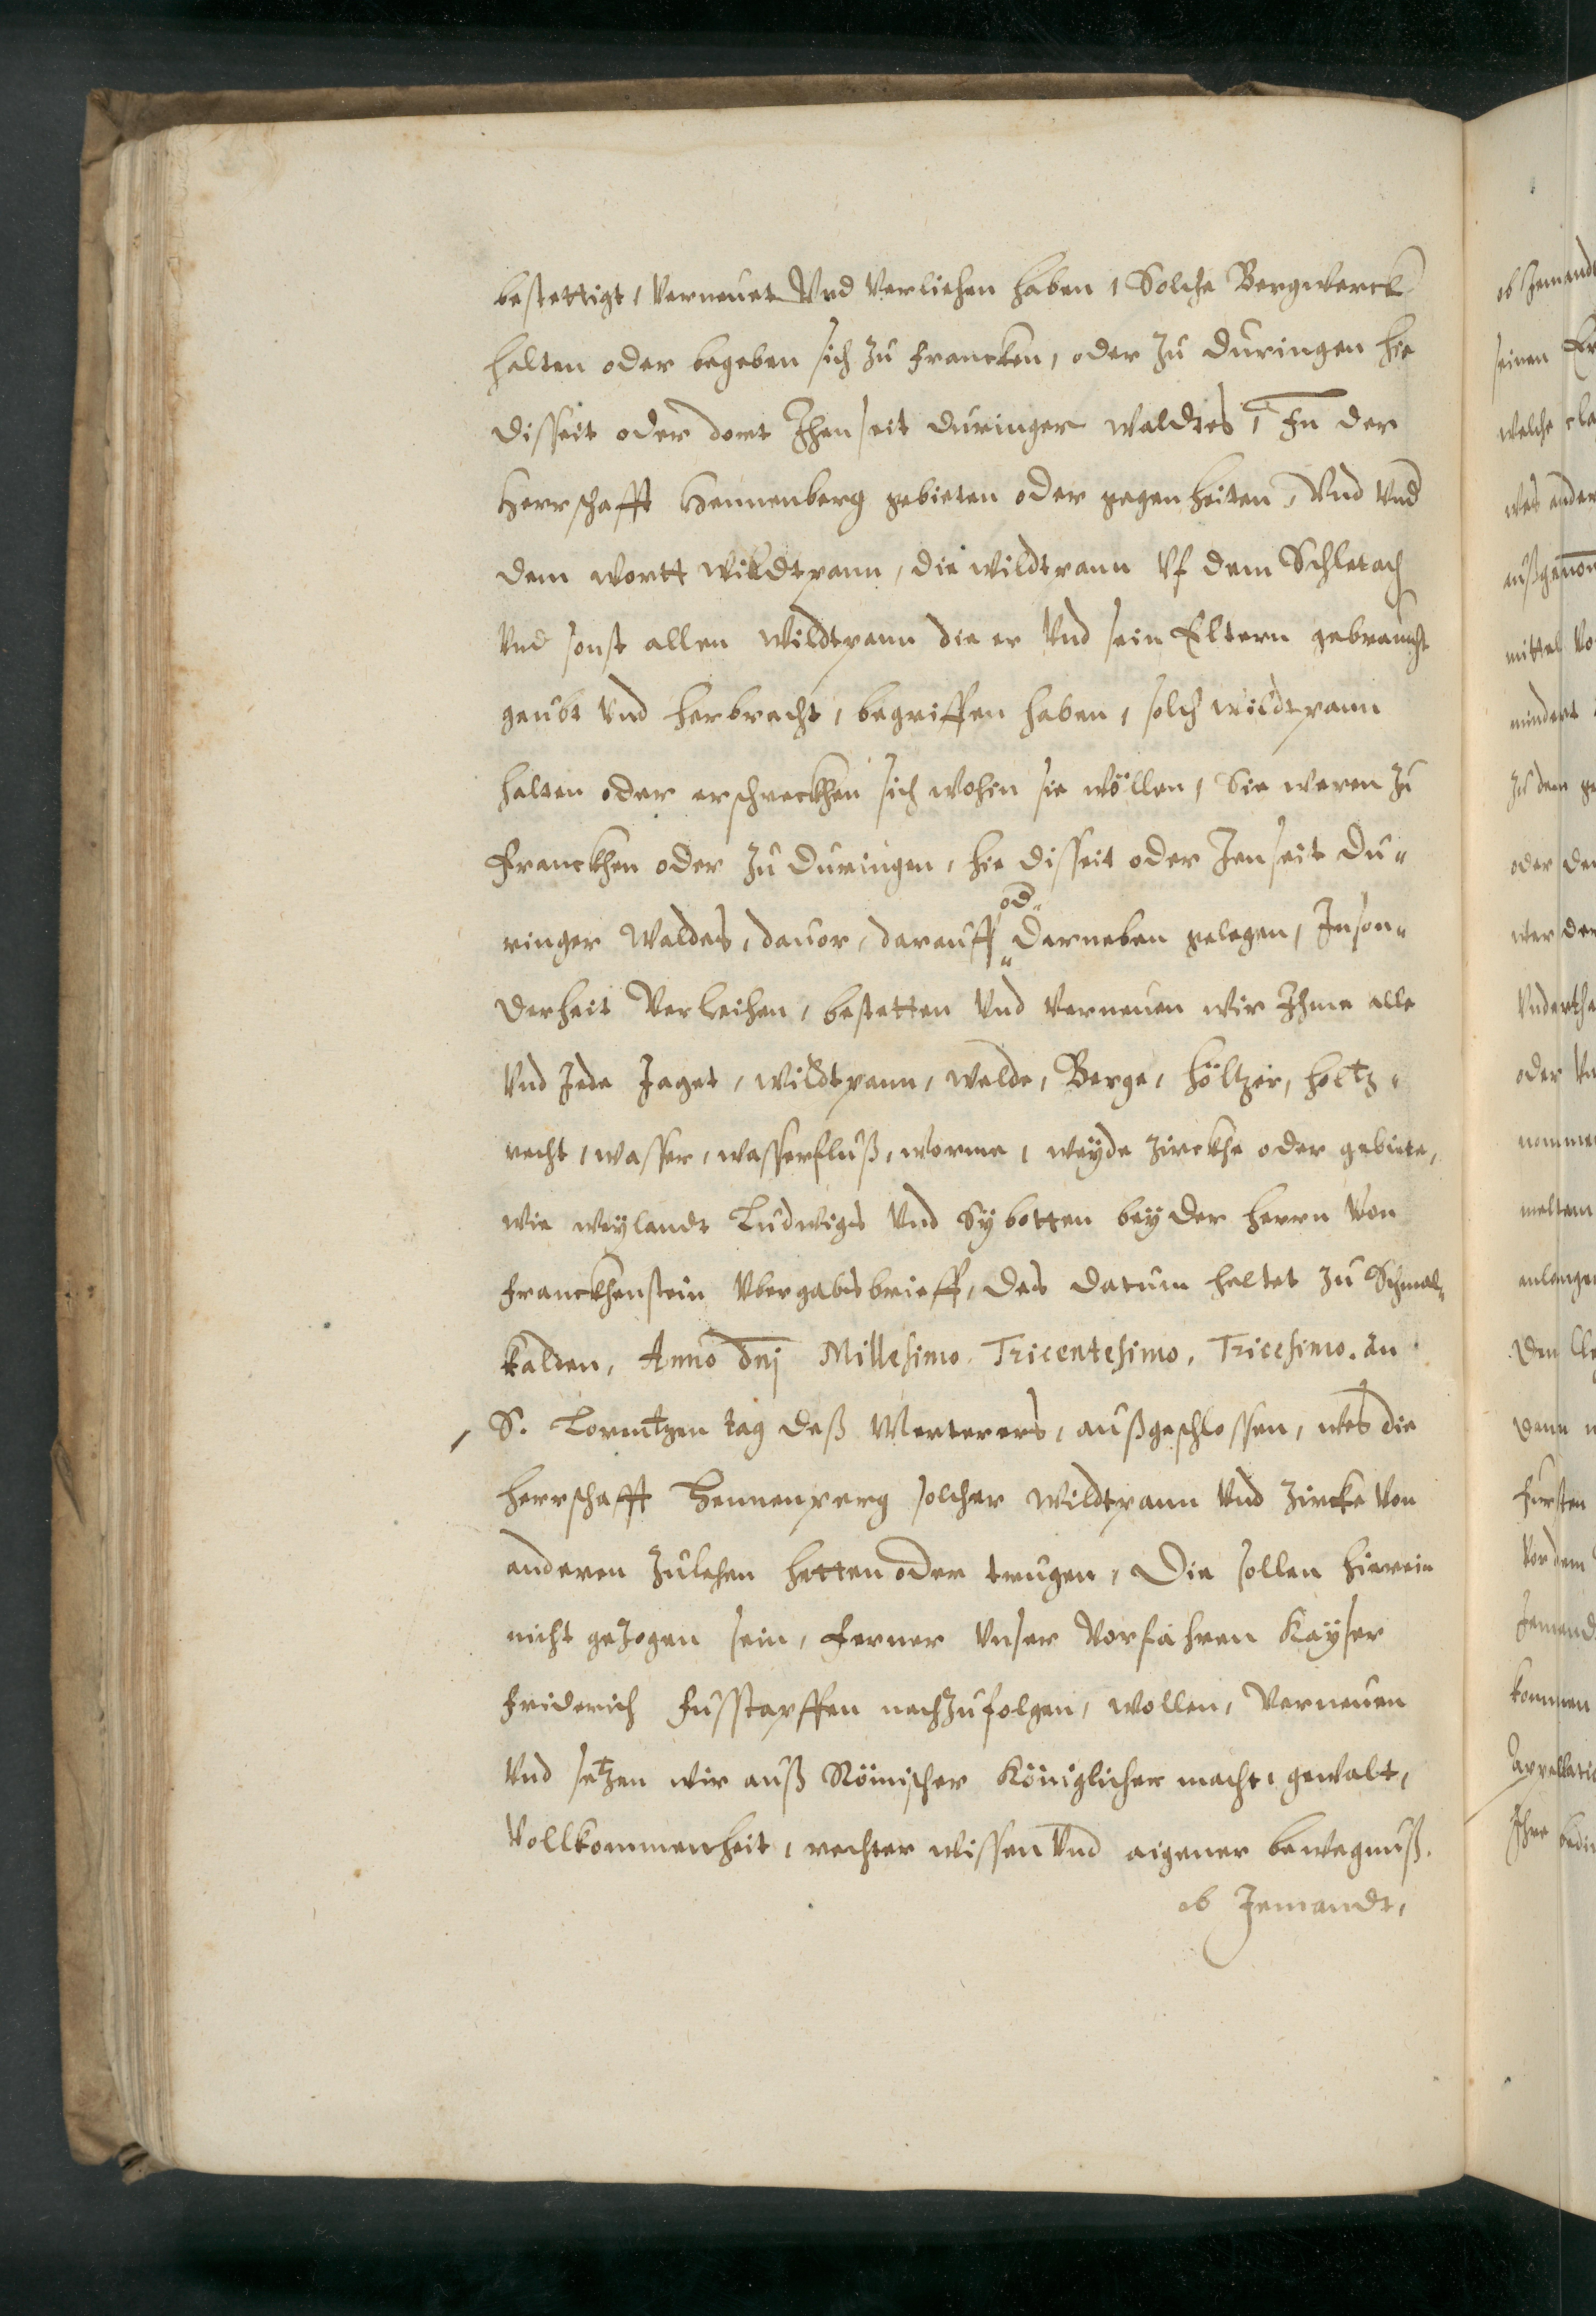 bestettigt, Verneuet Vnd Verliehen haben, Solche Bergwerck
halten oder begeben sich zu francken, oder zu duringen hie
disseit oder dort Jhenseit duringer waldtes, In der
Herrschafft Hennenberg gebieten oder gegenheiten, Vnd Vnd
dem wortt wildtpann, die wildtpann Vf dem Schletach
Vnd sonst allen wildtpann die er Vnd sein Eltern gebraucht
geubt Vnd herbracht, begriffen haben, solch wildtpann
halten oder erschreckhen sich wohin sie wöllen, Sie weren zu
Franckhen oder zu Duringen, hie disseit oder Jenseit Du„
ringer Waldes, dauor, darauff od. darneben gelegen, Inson„
derheit Verleihen, bestetten Vnd Verneuen wir Ihme alle
Vnd Jede Jaget, wildtpann, welde, Berge, höltzer, holtz„
recht, wasser, wasserfluß, worme, weyde zirckhe oder gebiete,
wie weylandt Ludwigs Vnd Sybotten beyder herrn Von
franckhenstein Vbergabsbrieff, des datum haltet zu Schmal„
kalden, Anno dnj Millesimo. Tricentesimo. Tricesimo. An
S. Lorentzen tag deß Merterers, außgeschlossen, wes die
herrschafft Hennenperg solcher wildtpann Vnd zircke Von
anderen zulehen hetten oder trugen, Die sollen hierein
nicht gezogen sein, ferner Vnser Vorfahren Kayser
friderich fusstapffen nachzufolgen, wollen, Verneuen
Vnd setzen wir auß Römischer Königlicher macht, gewalt,
Vollkommenheit, rechter wissen Vnd aigener bewegnuß.
ob Jemandt,